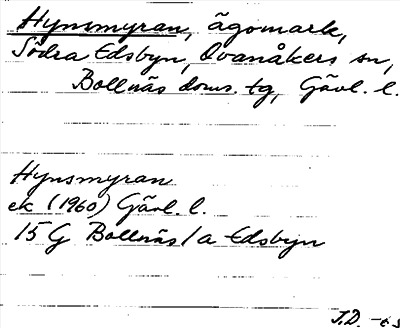 Hynsmyran, ägomark,
Södra Edsbyn, Ovanåkers sn,
Bollnäs doms. tg, Gävl. l.
Hynsmyran
ek (1960) Gävl. l.
15 G Bollnäs/a Edsbyn
J.D.